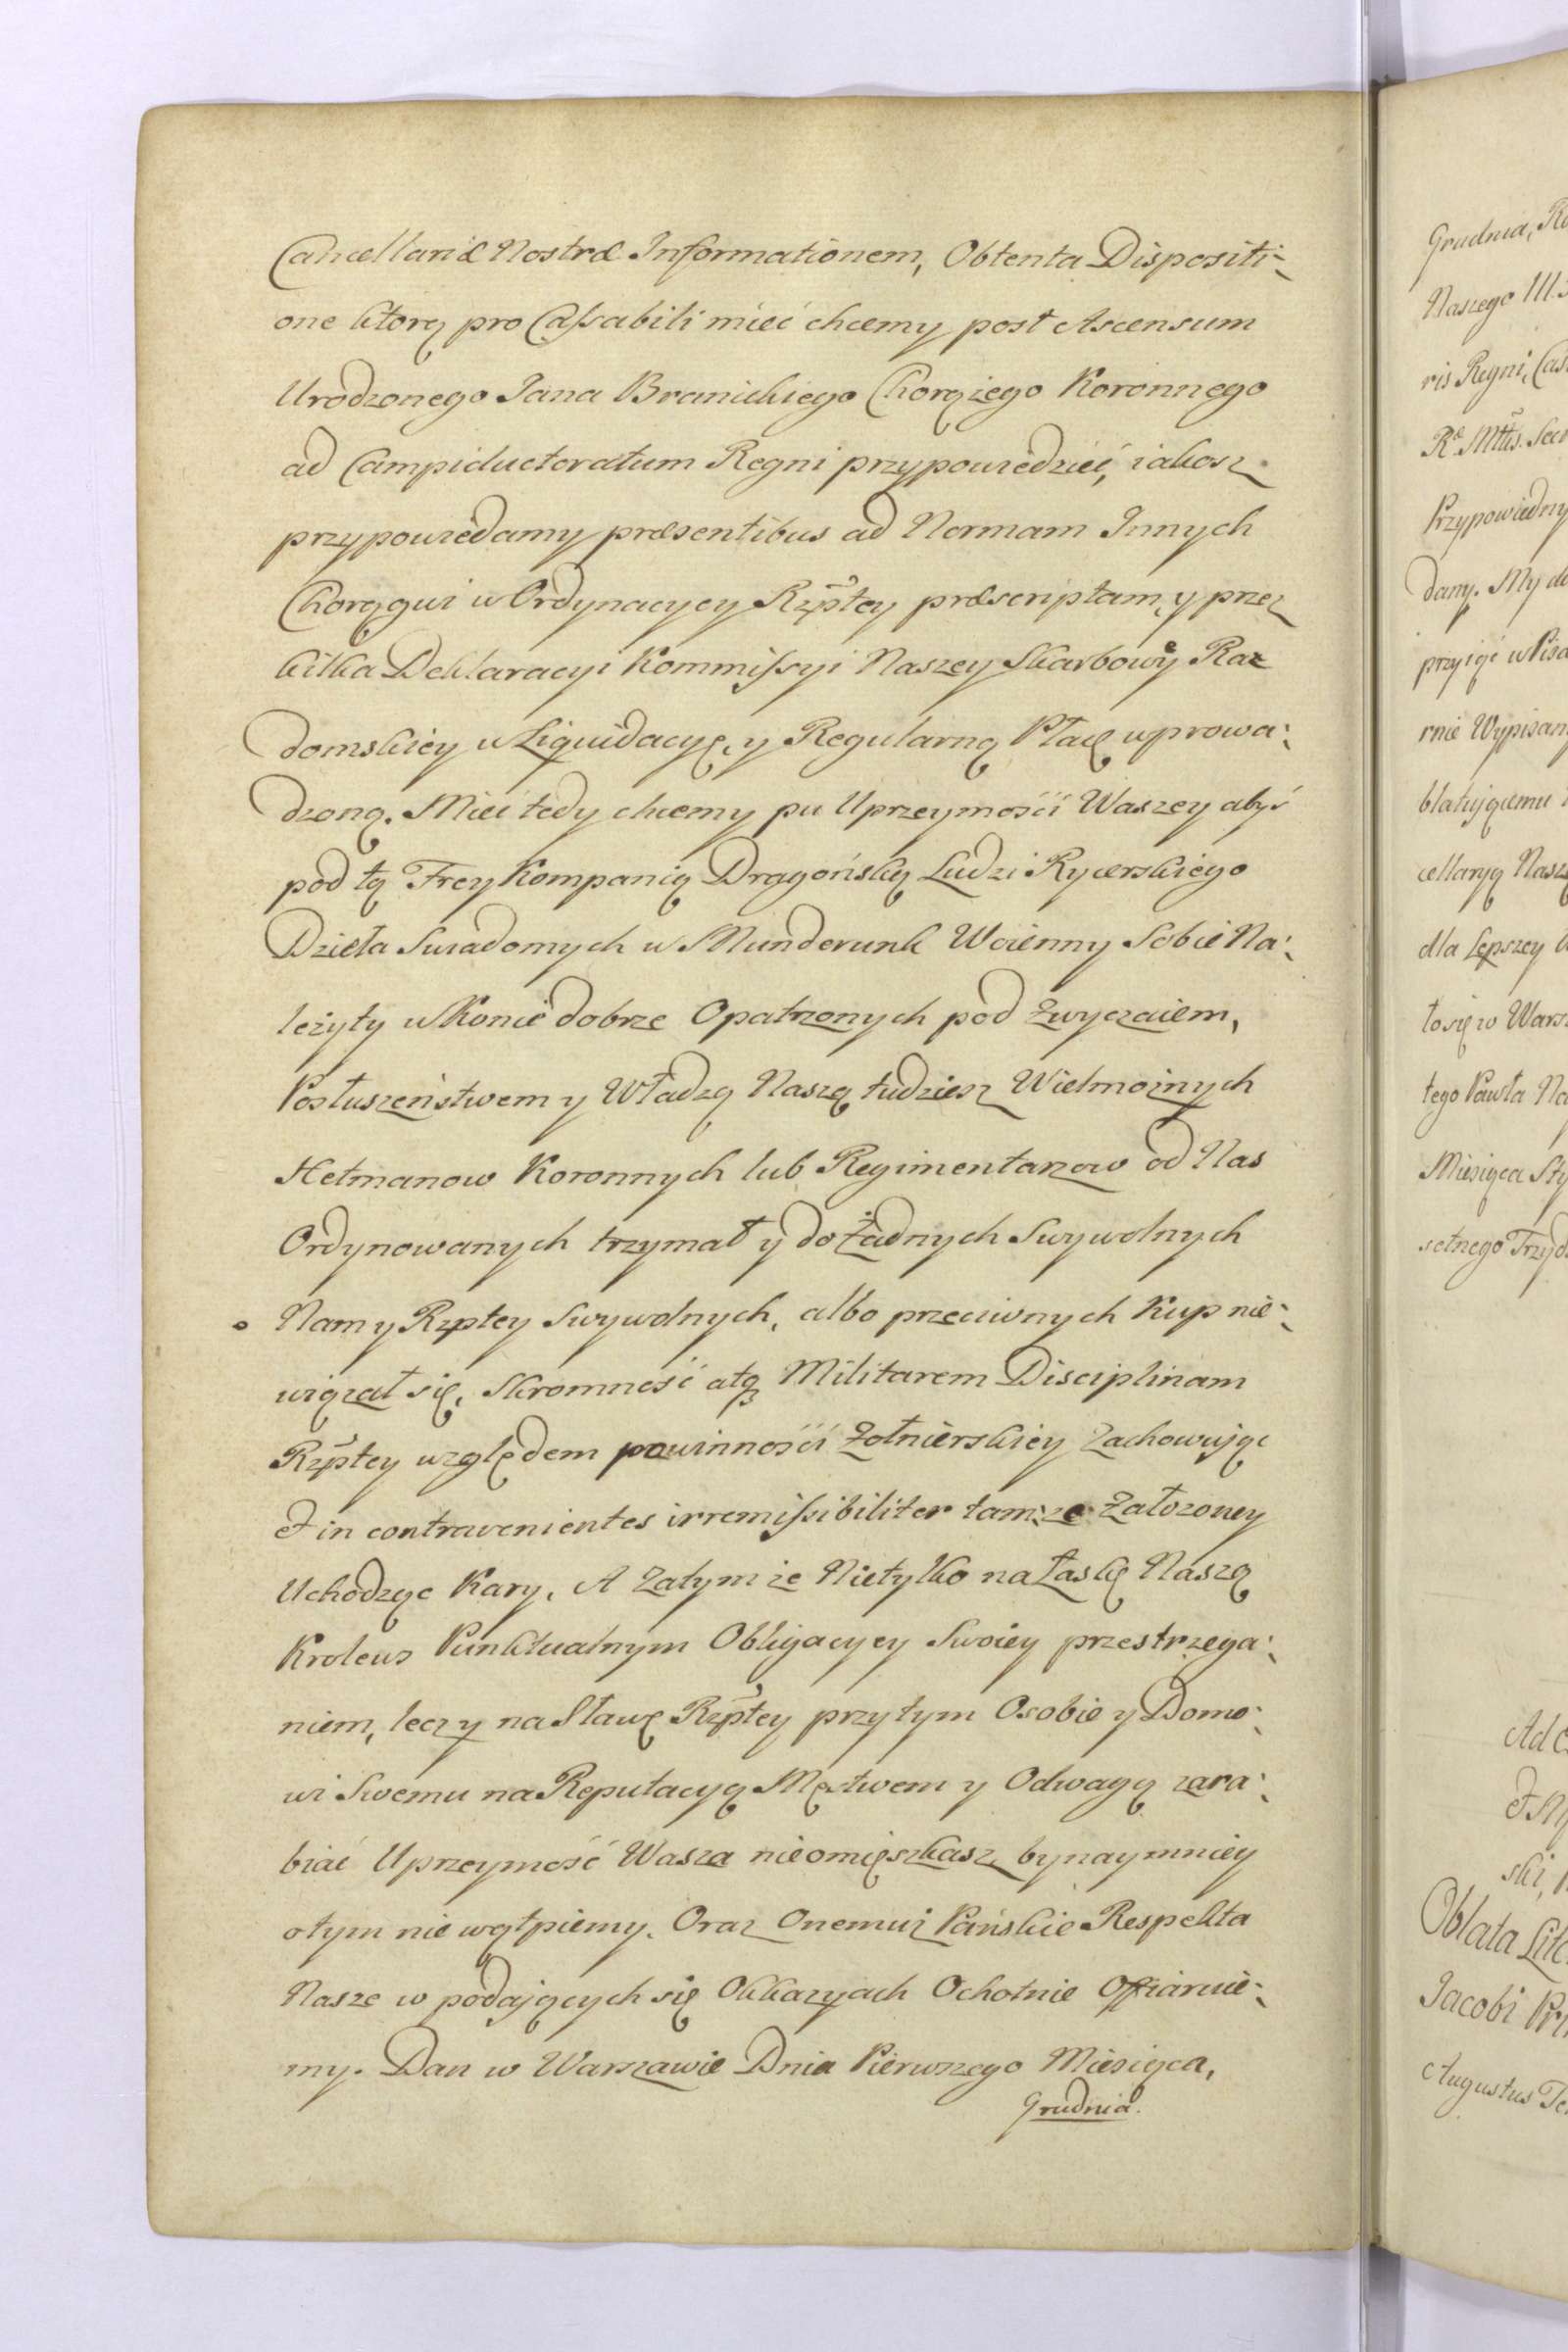 Cancellariæ Nostræ Informationem, Obtenta Dispositi-
one ktorą pro Cassabili mieć chcemy post Ascensum
Urodzonego Jana Branickiego Chorążego Koronnego
ad Campiductoratum Regni przypowiedzieć, iakosz
przypowiedamy præsentibus ad Normam Innych
Chorągwi w Ordynacyey Rzptey præscriptam, y przez
kilka Deklaracyi Kommissyi Naszey Skarbowey Ra-
domskiey w Liquidacyę, y Regularną Płacę wprowa:
dzoną. Mieć tedy chcemy po Uprzeymości Waszey abyś
pod tą Frey Kompanią Dragońską Ludzi Rycerskiego
Dzieła Swiadomych w Munderunk Woienny Sobie Na:
leżyty w Konie dobrze Opatrzonych pod Zwyczaiem,
Posłuszeństwem y Władzą Naszą tudziesz Wielmożnych
Hetmanow Koronnych lub Regimentarzow od Nas
Ordynowanych trzymał y do Żadnych Swywolnych
Nam y Rzptey Swywolnych, albo przeciwnych Kup nie-
wiązał się, Skromność atq Militarem Disciplinam
Rzptey względem powinności Żołnierskiey Zachowując
et in contravenientes irremissibiliter tamże Załozoney
Uchodząc Kary, A Zatym że Nietylko na Łaskę Naszą
Krolews Punktualnym Obligacyey Swoiey przestrzega:
niem, lecz y na Sławę Rzptey przytym Osobie y Domo:
wi Swemu na Reputacyą Męstwem y Odwagą zara:
biać Uprzeymość Wasza nieomięszkasz, bynaymniey
otym nie wątpiemy. Oraz Onemuż Pańskie Respekta
Nasze w podających się Okkazyach Ochotnie Offiaruie-
my. Dan w Warszawie Dnia Pierwszego Miesiąca,
Grudnia.
Grudnia,
Naszego III.
ris Regni,
Przypowiedny
dany. My
przyiąć
rnie Wypisany
cellaryą
dla Lepszey
to się w
tego Pawła
Miesiąca
setnego
Oblata
Jacobi
Augustus